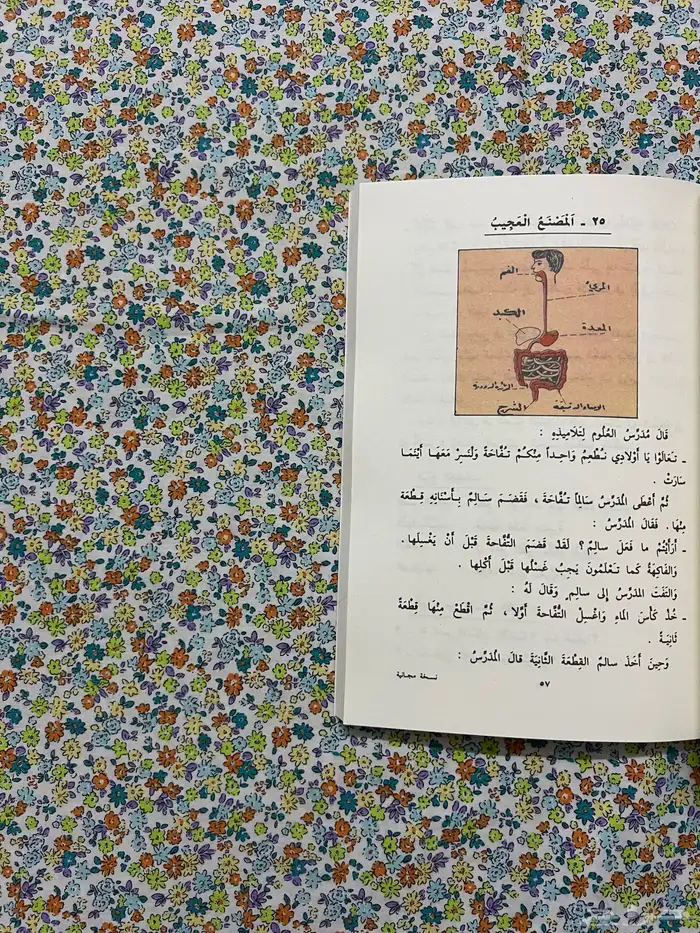 ٢٥ - اَلمَصْنَعُ الْعَجِيبُ
الفم
المريء
الكبد
المعدة
الشرج
قَالَ مُدَرِّسُ العُلُومِ لِتَلَامِيذِهِ :
- تَعَالَوْا يَا أَوْلَادِي نُطْعِمُ وَاحِداً مِنْكُمْ تُفَّاحَةً وَلْنَسِرْ مَعَهَا أَيْنَمَا
سَارَتْ .
ثُمَّ أَعْطَى المُدَرِّسُ سَالِماً تُفَّاحَةً ، فَقَضَمَ سَالِمٌ بِأَسْنَانِهِ قِطْعَة
مِنْهَا . فَقَالَ المُدَرِّسُ :
- أَرَأَيْتُمْ ما فَعَلَ سالِمٌ ؟ لَقَدْ قَضَمَ التُّفَّاحَةَ قَبْلَ أَنْ يَغْسِلَها .
وَالفَاكِهَةُ كَمَا تَعْلَمُونَ يَجِبُ غَسْلُها قَبْلَ أَكْلِها .
وَالتَفَتَ المُدَرِّسُ إِلى سالِمٍ وَقَالَ لَهُ :
- خُذْ كَأْسَ المَاءِ وَاغْسِلِ التُّفَّاحَةَ أَوَّلا ، ثُمَّ اقْطَعْ مِنْهَا قِطْعَةً
ثَانِيَةً .
وَحِينَ أَخَذَ سالمٌ القِطْعَةَ الثَّانِيَةَ قالَ المُدَرِّسُ :
نسخة مجانية
٥٧